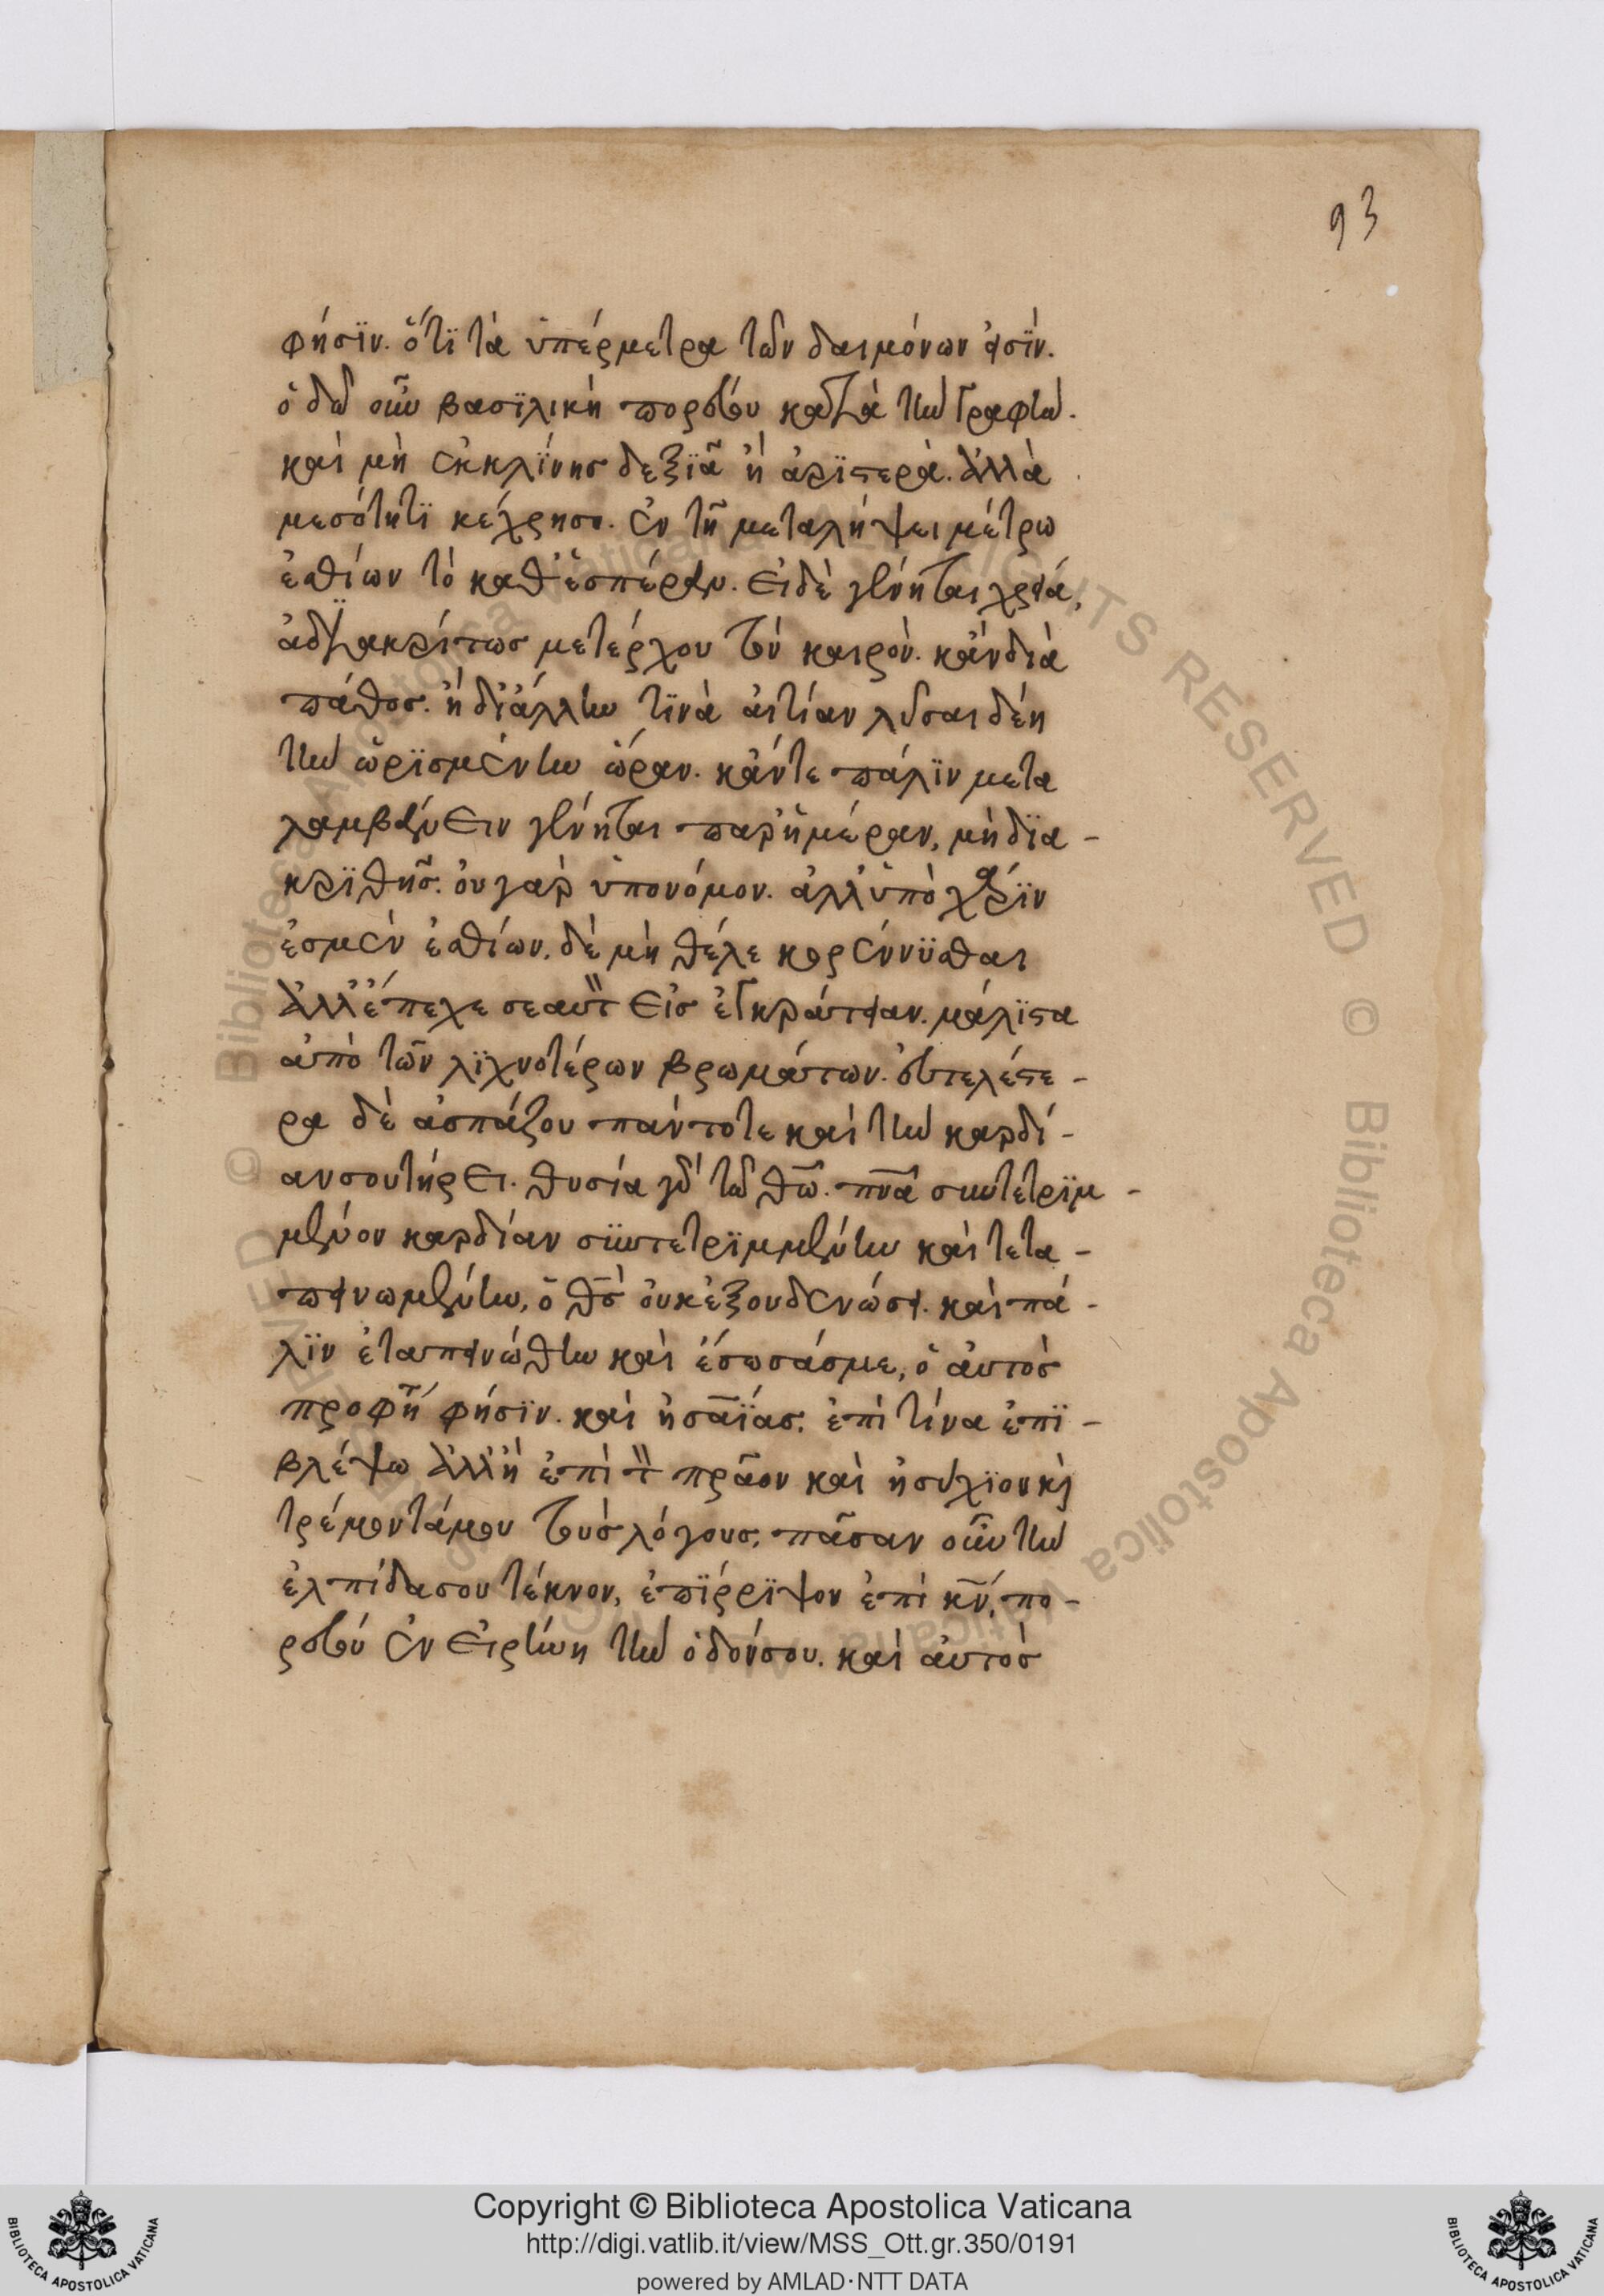 93
φήσϊν. ὅτϊ τὰ ὑπέρμετρα τῶν δαιμόνων εἰσϊν.
ὁδῶ οὖν βασϊλικὴ πορεύου κατὰ τὴν γραφὴν.
καὶ μὴ ἐκκλίνης δεξϊᾶ ἢ ἀρϊστερὰ. ἀλλὰ
μεσότητϊ κέχρησο. ἐν τῆ μεταλήψει μέτρω
ἐσθίων τὸ καθ' ἑσπέραν. εἰ δὲ γένηται χρεία,
ἀδϊακρίτως μετέρχου τὸν καιρὸν. κἂν διὰ
πάθος. ἢ δϊ' ἄλλην τϊνὰ αἰτίαν λῦσαι δέη
τὴν ὡρϊσμένην ὥραν. κἄν τε πάλϊν μετα
λαμβάνειν γένηται παρ' ἡμέραν, μὴ δϊα-
κρϊθῆς. οὐ γὰρ ὑπὸ νόμον. ἀλλ' ὑπὸ χάρϊν
ἐσμὲν ἐσθίων. δὲ μὴ θέλε κορέννϋσθαι
ἀλλ' ἔπεχε σεαυτ εἰς ἐγκράτειαν. μάλϊστα
ἀπὸ τῶν λϊχνοτέρων βρωμάτων. εὐτελέστε-
ρα δὲ ἀσπάζου πάντοτε καὶ τὴν καρδί-
αν σου τήρει. θυσία γὰρ τῶ θω. πνα συντετρϊμ-
μένον καρδίαν συντετρϊμμένην καὶ τετα-
πεινωμένην, ὁ θς οὐκ ἐξουδενώσει. καὶ πά-
λϊν ἐταπεινώθην καὶ ἔσωσάς με, ὁ αὐτὸς
προφή φήσϊν. καὶ ἡσαΐας. ἐπὶ τίνα ἐπϊ-
βλέψω ἀλλ' ἢ ἐπὶ τ πρᾶον καὶ ἡσύχϊον κὶ
τρέμοντά μου τοὺς λόγους, πᾶσαν οὖν τὴν
ἐλπίδα σου τέκνον, ἐπϊρρϊψον ἐπὶ κν, πο-
ρεύου ἐν εἰρήνη τὴν ὁδόν σου. καὶ αὐτὸς
Copyright © Biblioteca Apostolica Vaticana
http://digi.vatlib.it/view/MSS_Ott.gr.350/0191
powered by AMLAD·NTT DATA
BIBLIOTECA APOSTOLICA VATICANA
BIBLIOTECA APOSTOLICA VATICANA